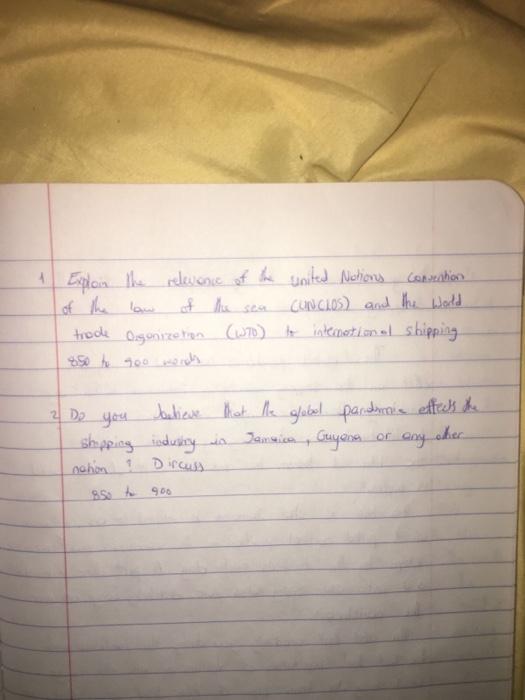 1 Explain the relevance of the united Nations Convention
of the law of the sea (UNCLOS) and the World
trade Organization (WTO) to international shipping
850 to 900 words
2 Do you believe that the global pandemic effects the
shipping industry in Jamaica, Guyana or any other
nation ? Discuss
850 to 900